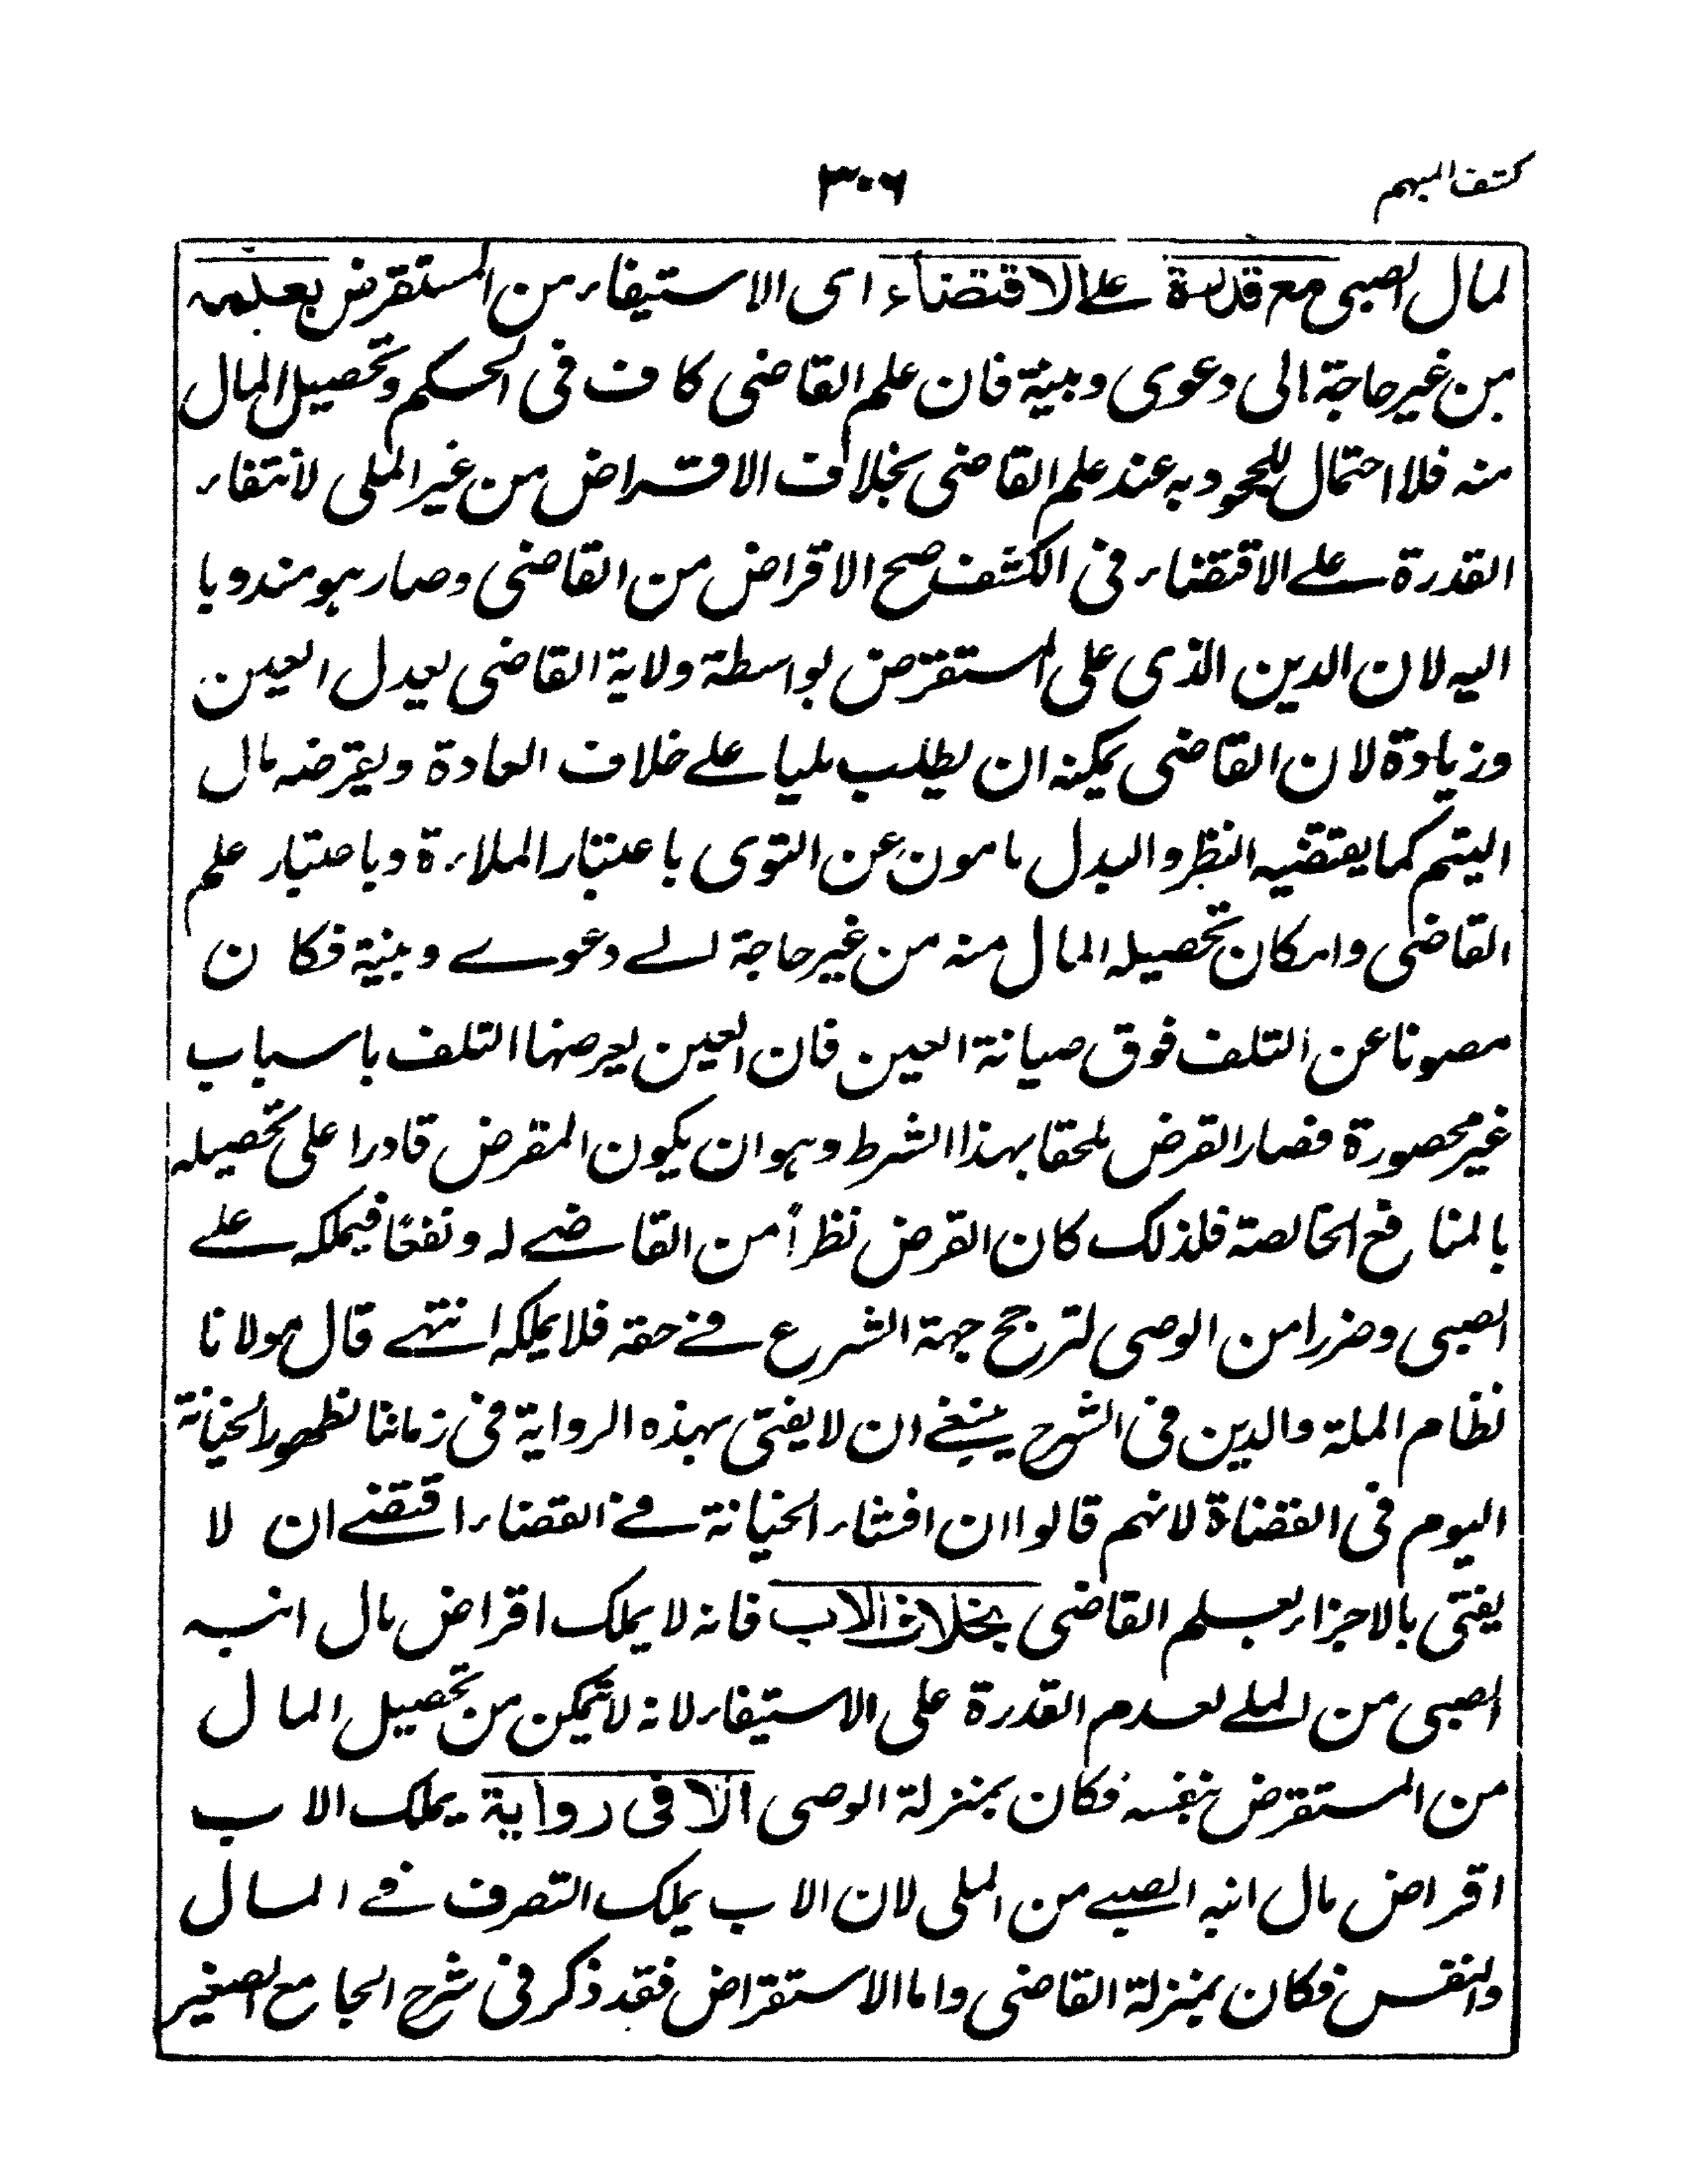 كشف المبهم
٣٠٦
لمال الصبى مع قدرة على الاقتضاء اى الاستيفاء من المستقرض بعلمه
من غير حاجة الى دعوى وبينة فان علم القاضى كاف فى الحكم وتحصيل المال
منه فلا احتمال للجحود به عند علم القاضى بخلاف الاقراض من غير الملى لانتفاء
القدرة على الاقتضاء فى الكشف صح الاقراض من القاضى وصار هو مندوبا
اليه لان الدين الذى على المستقرض بواسطة ولاية القاضى يعدل العين
وزيادة لان القاضى يمكنه ان يطلب مليا على خلاف العادة ويقرضه مال
اليتم كما يقتضيه النظر والبدل مامون عن التوى باعتبار الملاءة وباعتبار علم
القاضى وامكان تحصيله المال منه من غير حاجة الى دعوے وبينة فكان
مصونا عن التلف فوق صيانة العين فان العين يعرضها التلف باسباب
غير محصورة فصار القرض ملحقا بهذا الشرط وهو ان يكون المقرض قادرا على تحصيله
بالمنافع الخالصة فلذلك كان القرض نظراً من القاضے له ونفعًا فيملكه على
الصبى وضررا من الوصى لترجح جهة الشرع فے حقه فلا يملكه انتهے قال مولانا
نظام الملة والدين فى الشرح ينبغے ان لا يفتى بهذه الرواية فى زماننا لظهور الخيانة
اليوم فى القضاة لانهم قالوا ان افشاء الخيانة فے القضاء اقتضے ان لا
يفتى بالاجزاء بعلم القاضى بخلاف الاب فانه لا يملك اقراض مال ابنه
الصبى من الملے لعدم القدرة على الاستيفاء لانه لا يتمكن من تحصيل المال
من المستقرض بنفسه فكان بمنزلة الوصى الا فى رواية يملك الاب
اقراض مال ابنه الصبے من الملى لان الاب يملك التصرف فے المال
والنفس فكان بمنزلة القاضى واما الاستقراض فقد ذكر فى شرح الجامع الصغير